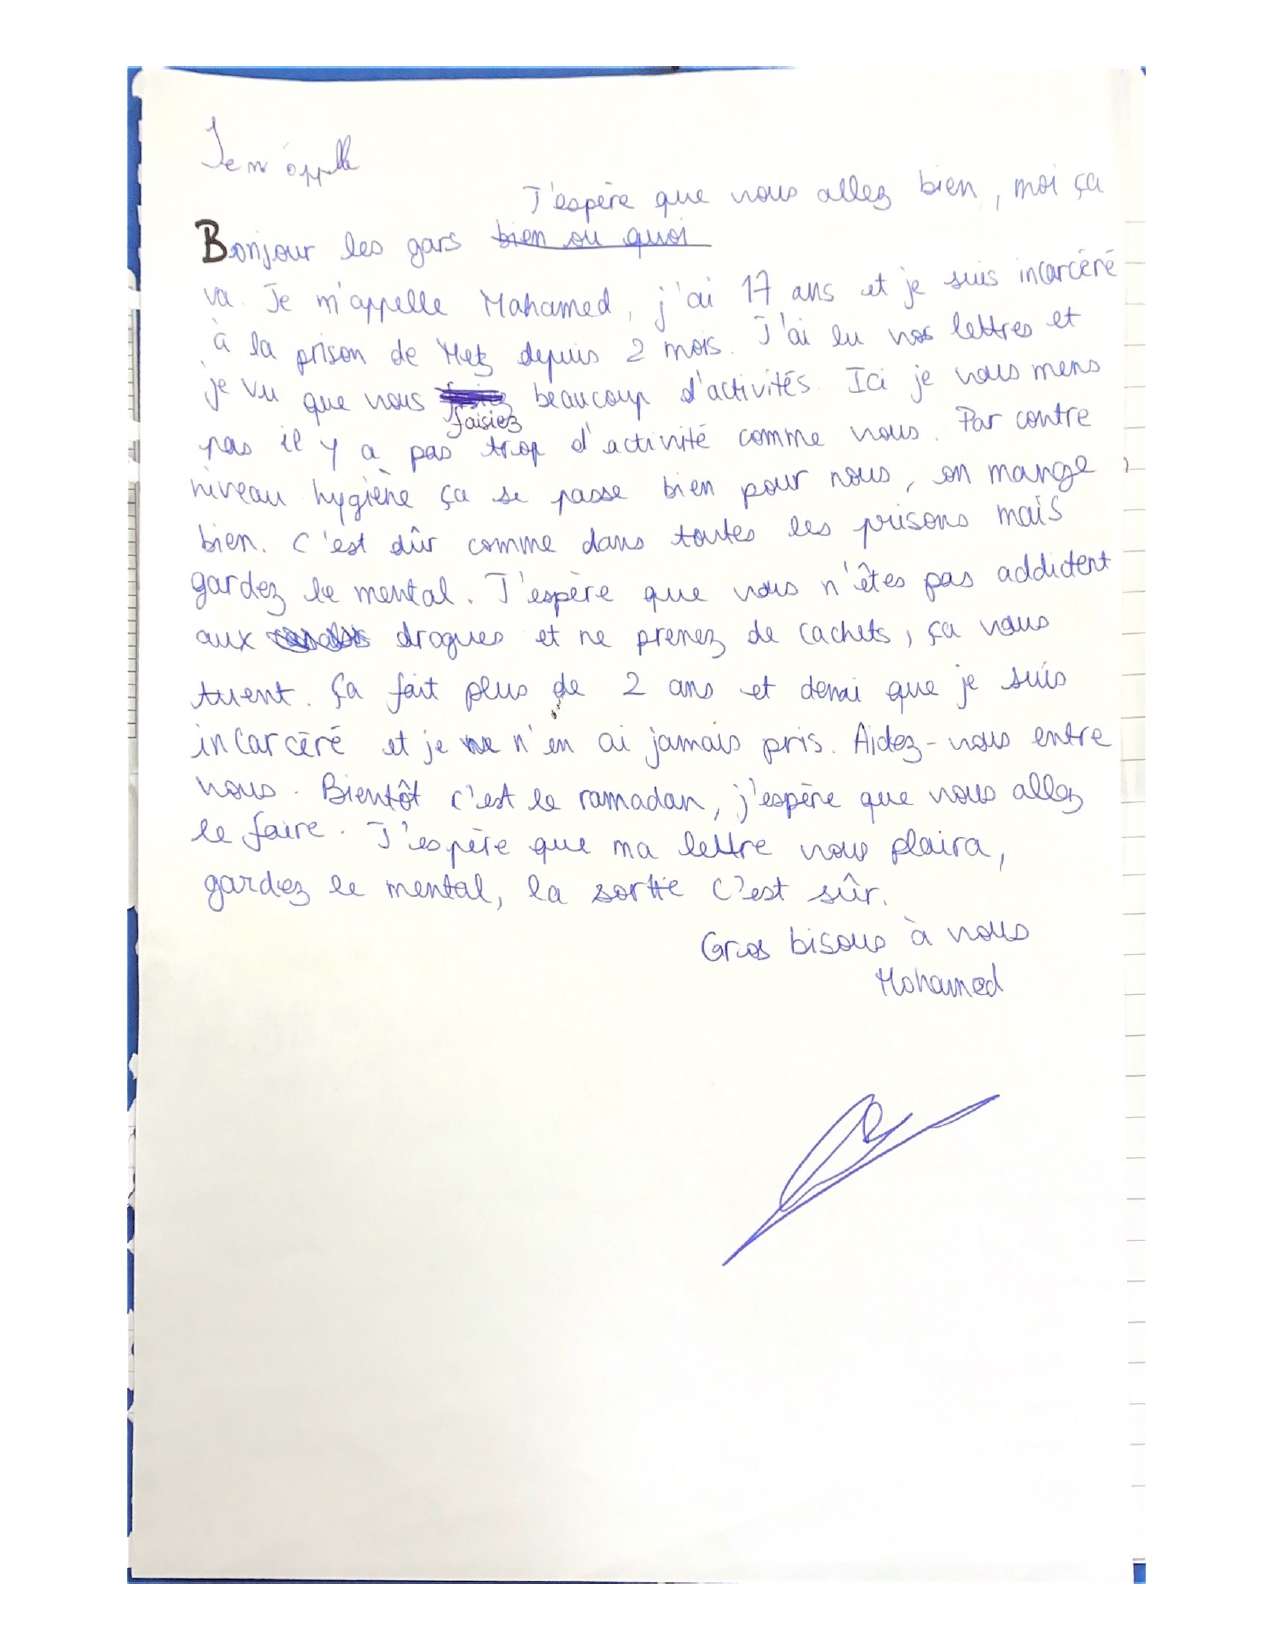 Je m'appelle
J'espère que vous allez bien, moi ça
Bonjour les gars bien ou quoi
va. Je m'appelle Mohamed, j'ai 17 ans et je suis incarcéré
à la prison de Metz depuis 2 mois. J'ai lu vos lettres et
je vu que vous beaucoup d'activités. Ici je vous mens
faisiez
pas il y a pas trop d'activité comme vous. Par contre
niveau hygiène ça se passe bien pour nous, on mange
bien. C'est dûr comme dans toutes les prisons mais
gardez le mental. J'espère que vous n'êtes pas addictent
aux drogues et ne prenez de cachets, ça vous
tuent. Ça fait plus de 2 ans et demi que je suis
incarcéré et je n'en ai jamais pris. Aidez-vous entre
vous. Bientôt c'est le ramadan, j'espère que vous allez
le faire. J'espère que ma lettre vous plaira,
gardez le mental, la sortie c'est sûr.
Gros bisous à vous
Mohamed